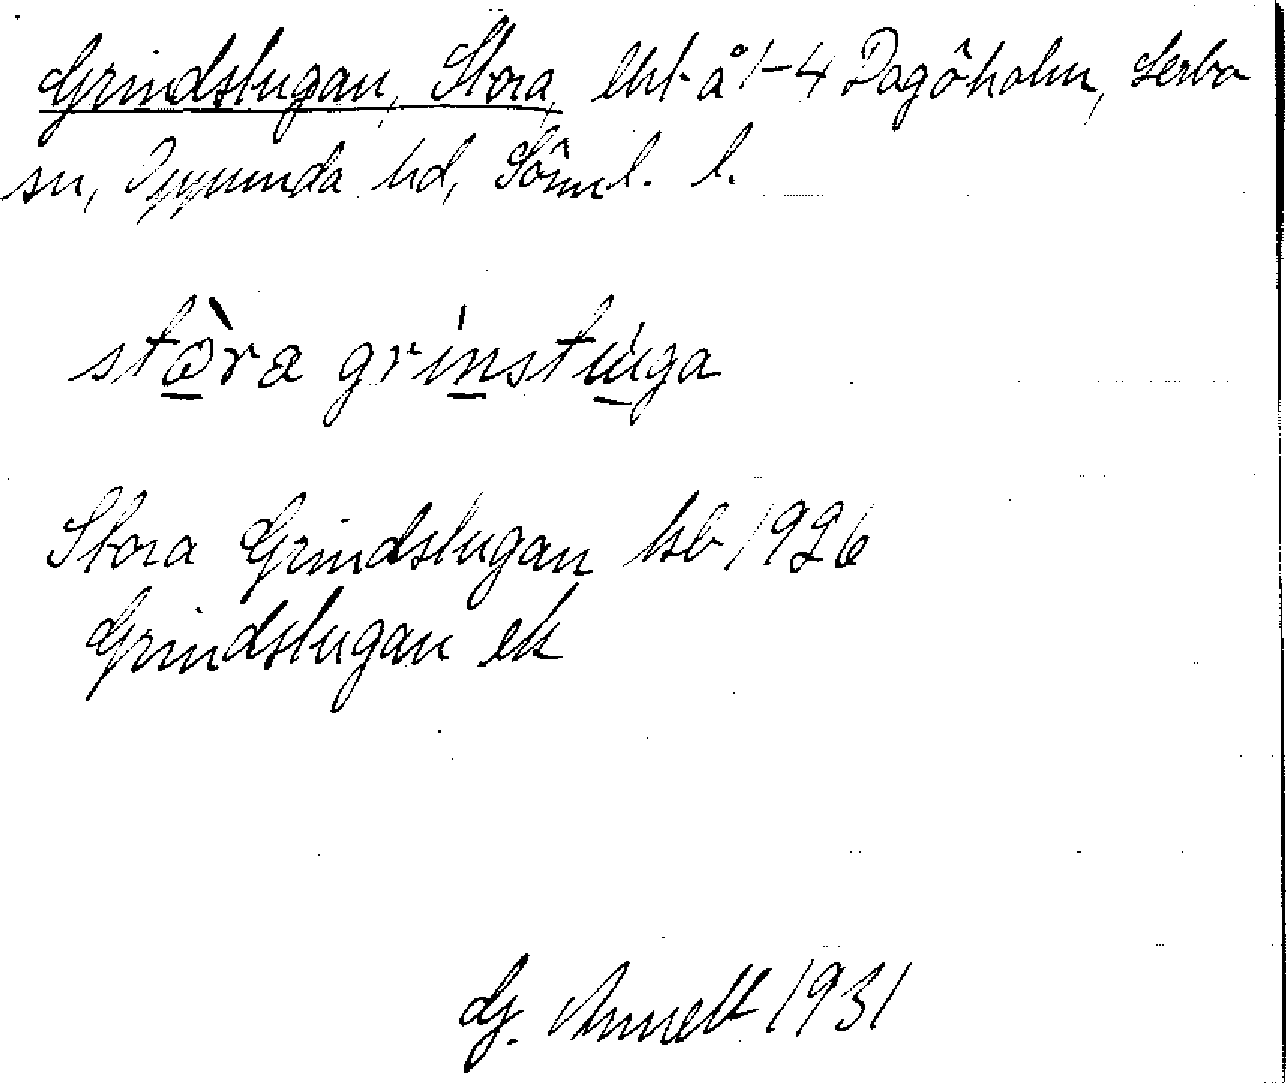 Grindstugan, Stora, lht å 1-4 Dagöholm, Lerbo
sn, Oppunda hd, Söml. l.
stòra grinstùga
Stora Grindstugan kb 1926
Grindstugan ek
G. Annell 1931